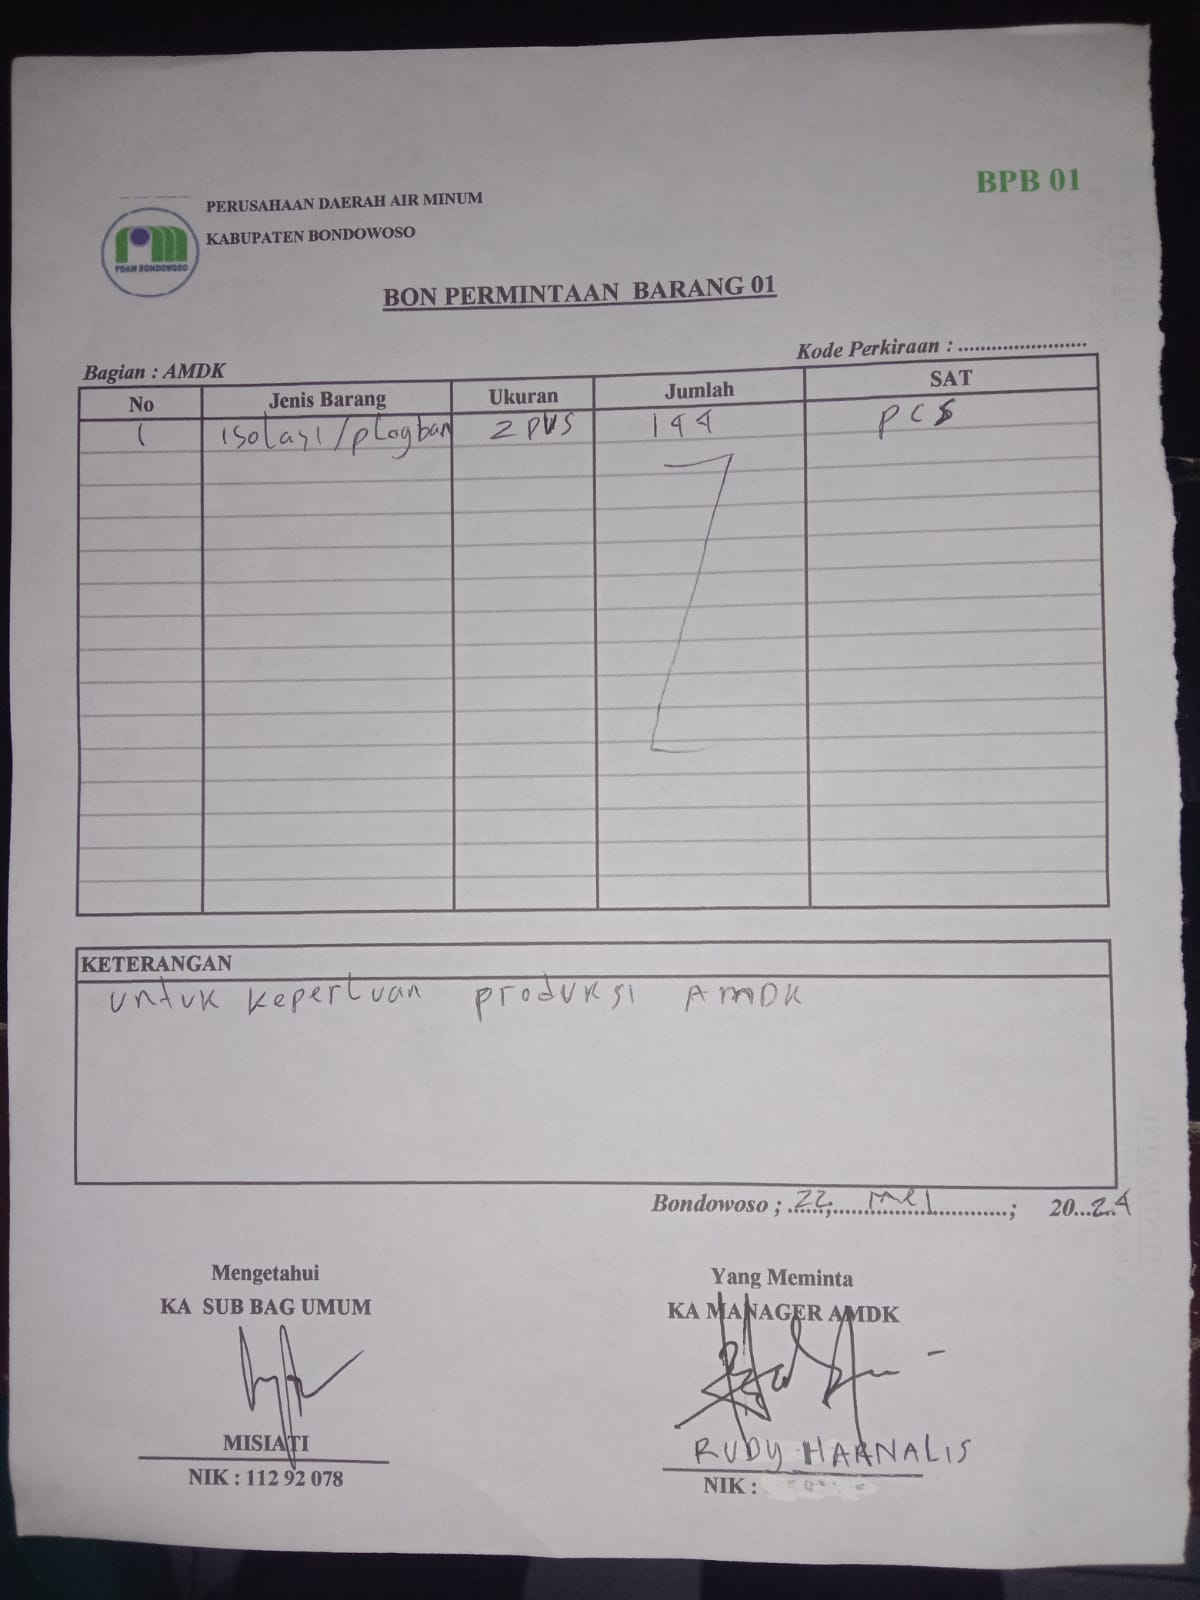 BPB 01
PERUSAHAAN DAERAH AIR MINUM
KABUPATEN BONDOWOSO
PDAM BONDOWOSO
BON PERMINTAAN BARANG 01
Bagian : AMDK
Kode Perkiraan : ........................
No Jenis Barang Ukuran Jumlah SAT
1 isolasi/plagban 2 144 PCS
KETERANGAN
untuk keperluan produksi AMDK
Bondowoso ; 22 ; Mei ; 2024
Mengetahui
KA SUB BAG UMUM
MISIATI
NIK : 112 92 078
Yang Meminta
KA MANAGER AMDK
RUDY HARNALIS
NIK :